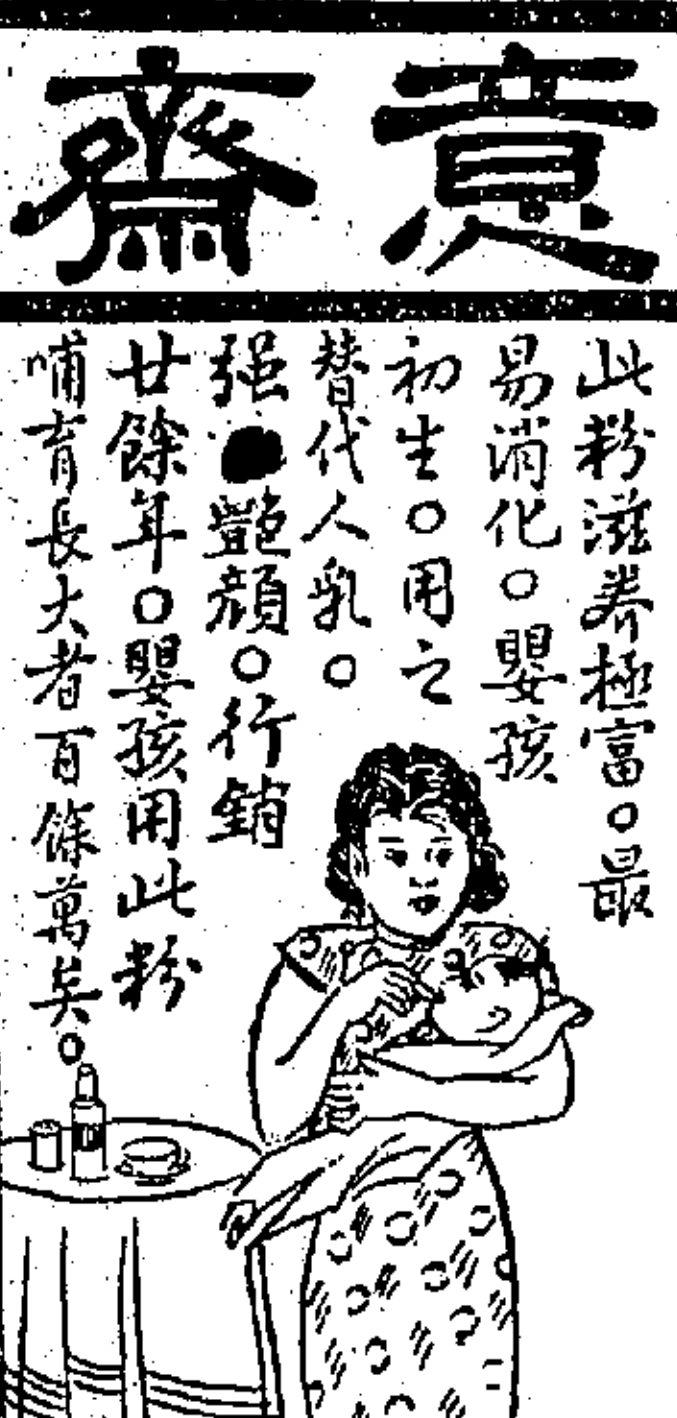 意齋
此粉滋養極富○最
易消化○嬰孩
初生○用之
替代人乳○
强 艷顏○行銷
廿餘年○嬰孩用此粉
哺育長大者百餘萬矣○